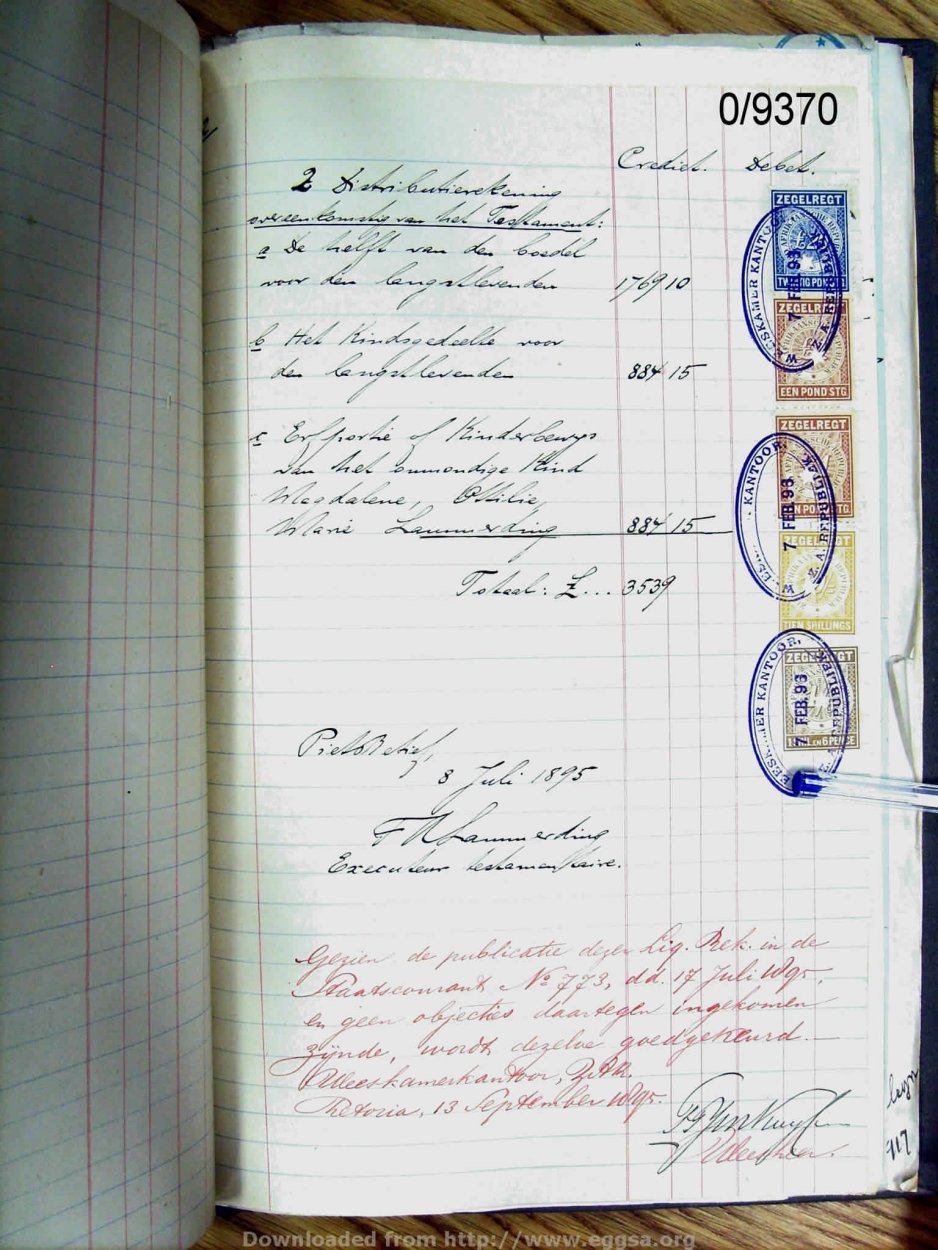 0/9370
Crediet. Debet.
2 Distributierekening
overeenkomstig van het Testament:
a De helft van den boedel
voor den langstlevenden 1769 10
b Het Kindsgedeelte voor
den langstlevenden 884 15
c Erfportie of Kinderbewys
van het onmondige Kind
Magdalene, Ottilie,
Marie Lammerding 884 15
Totaal: £... 3539
ZEGELREGT
TWINTIG POND
WEESKAMER KANTOOR,
7 FEB. 93
Z. A. REPUBLIEK
ZEGELREGT
EEN POND STG
ZEGELREGT
EEN POND STG
KANTOOR,
7 FEB. 93
Z. A. REPUBLIEK
ZEGELREGT
TIEN SHILLINGS
ZEGELREGT
6 PENCE
WEESKAMER KANTOOR,
7 FEB. 93
REPUBLIEK
Piet Retief,
8 Juli 1895
Lammerding
Executeur testamentaire.
Gezien de publicatie dezer Liq. Rek. in de
Staatscourant No 773, d.d. 17 Juli 1895,
en geen objecties daartegen ingekomen
zijnde, wordt dezelve goedgekeurd.
Weeskamerkantoor, Z.A.R.
Pretoria, 13 September 1895.
Weesheer.
917
Downloaded from http://www.eggsa.org